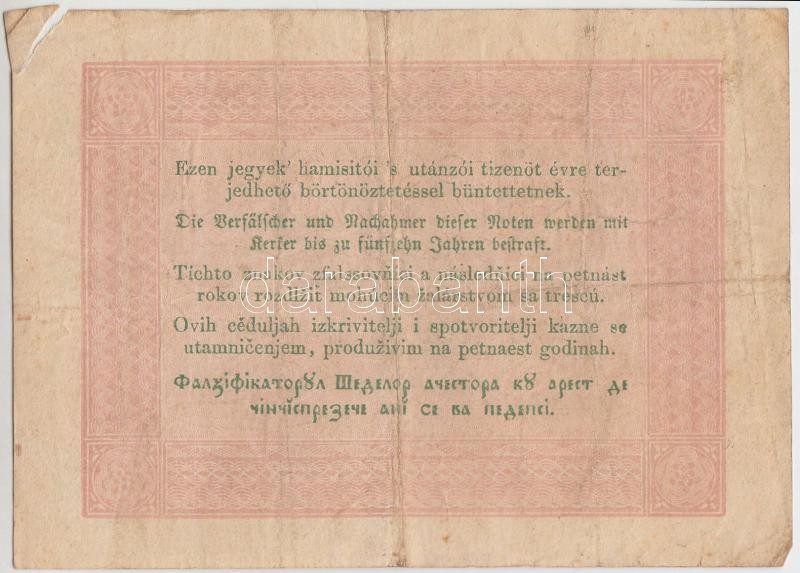 Ezen jegyek' hamisitói 's utánzói tizenöt évre ter-
jedhető börtönöztetéssel büntettetnek.
Die Verfälscher und Nachahmer dieser Noten werden mit
Kerker bis zu fünfzehn Jahren bestraft.
Tíchto znakov zfalssovňíci a násladňíci na petnást
rokov rozdĺžit mohúcím žalárstvom sa trescú.
darabanth
Ovih céduljah izkrivitelji i spotvoritelji kazne se
utamničenjem, produživim na petnaest godinah.
Фалꙅіфікаторꙋл Шеделор ачестора кꙋ арест де
чінчіспреꙅече ані се ва педепсі.